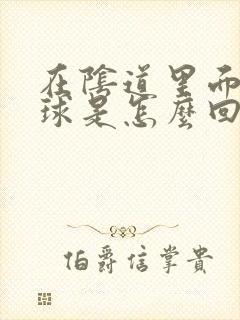 在陰道里而
球是怎麼回
伯爵信掌貴